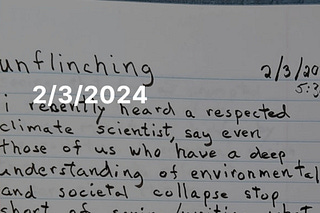 unflinching 2/3/20
5:3
2/3/2024
i recently heard a respected
climate scientist, say even
those of us who have a deep
understanding of environmental
and societal collapse stop
short of